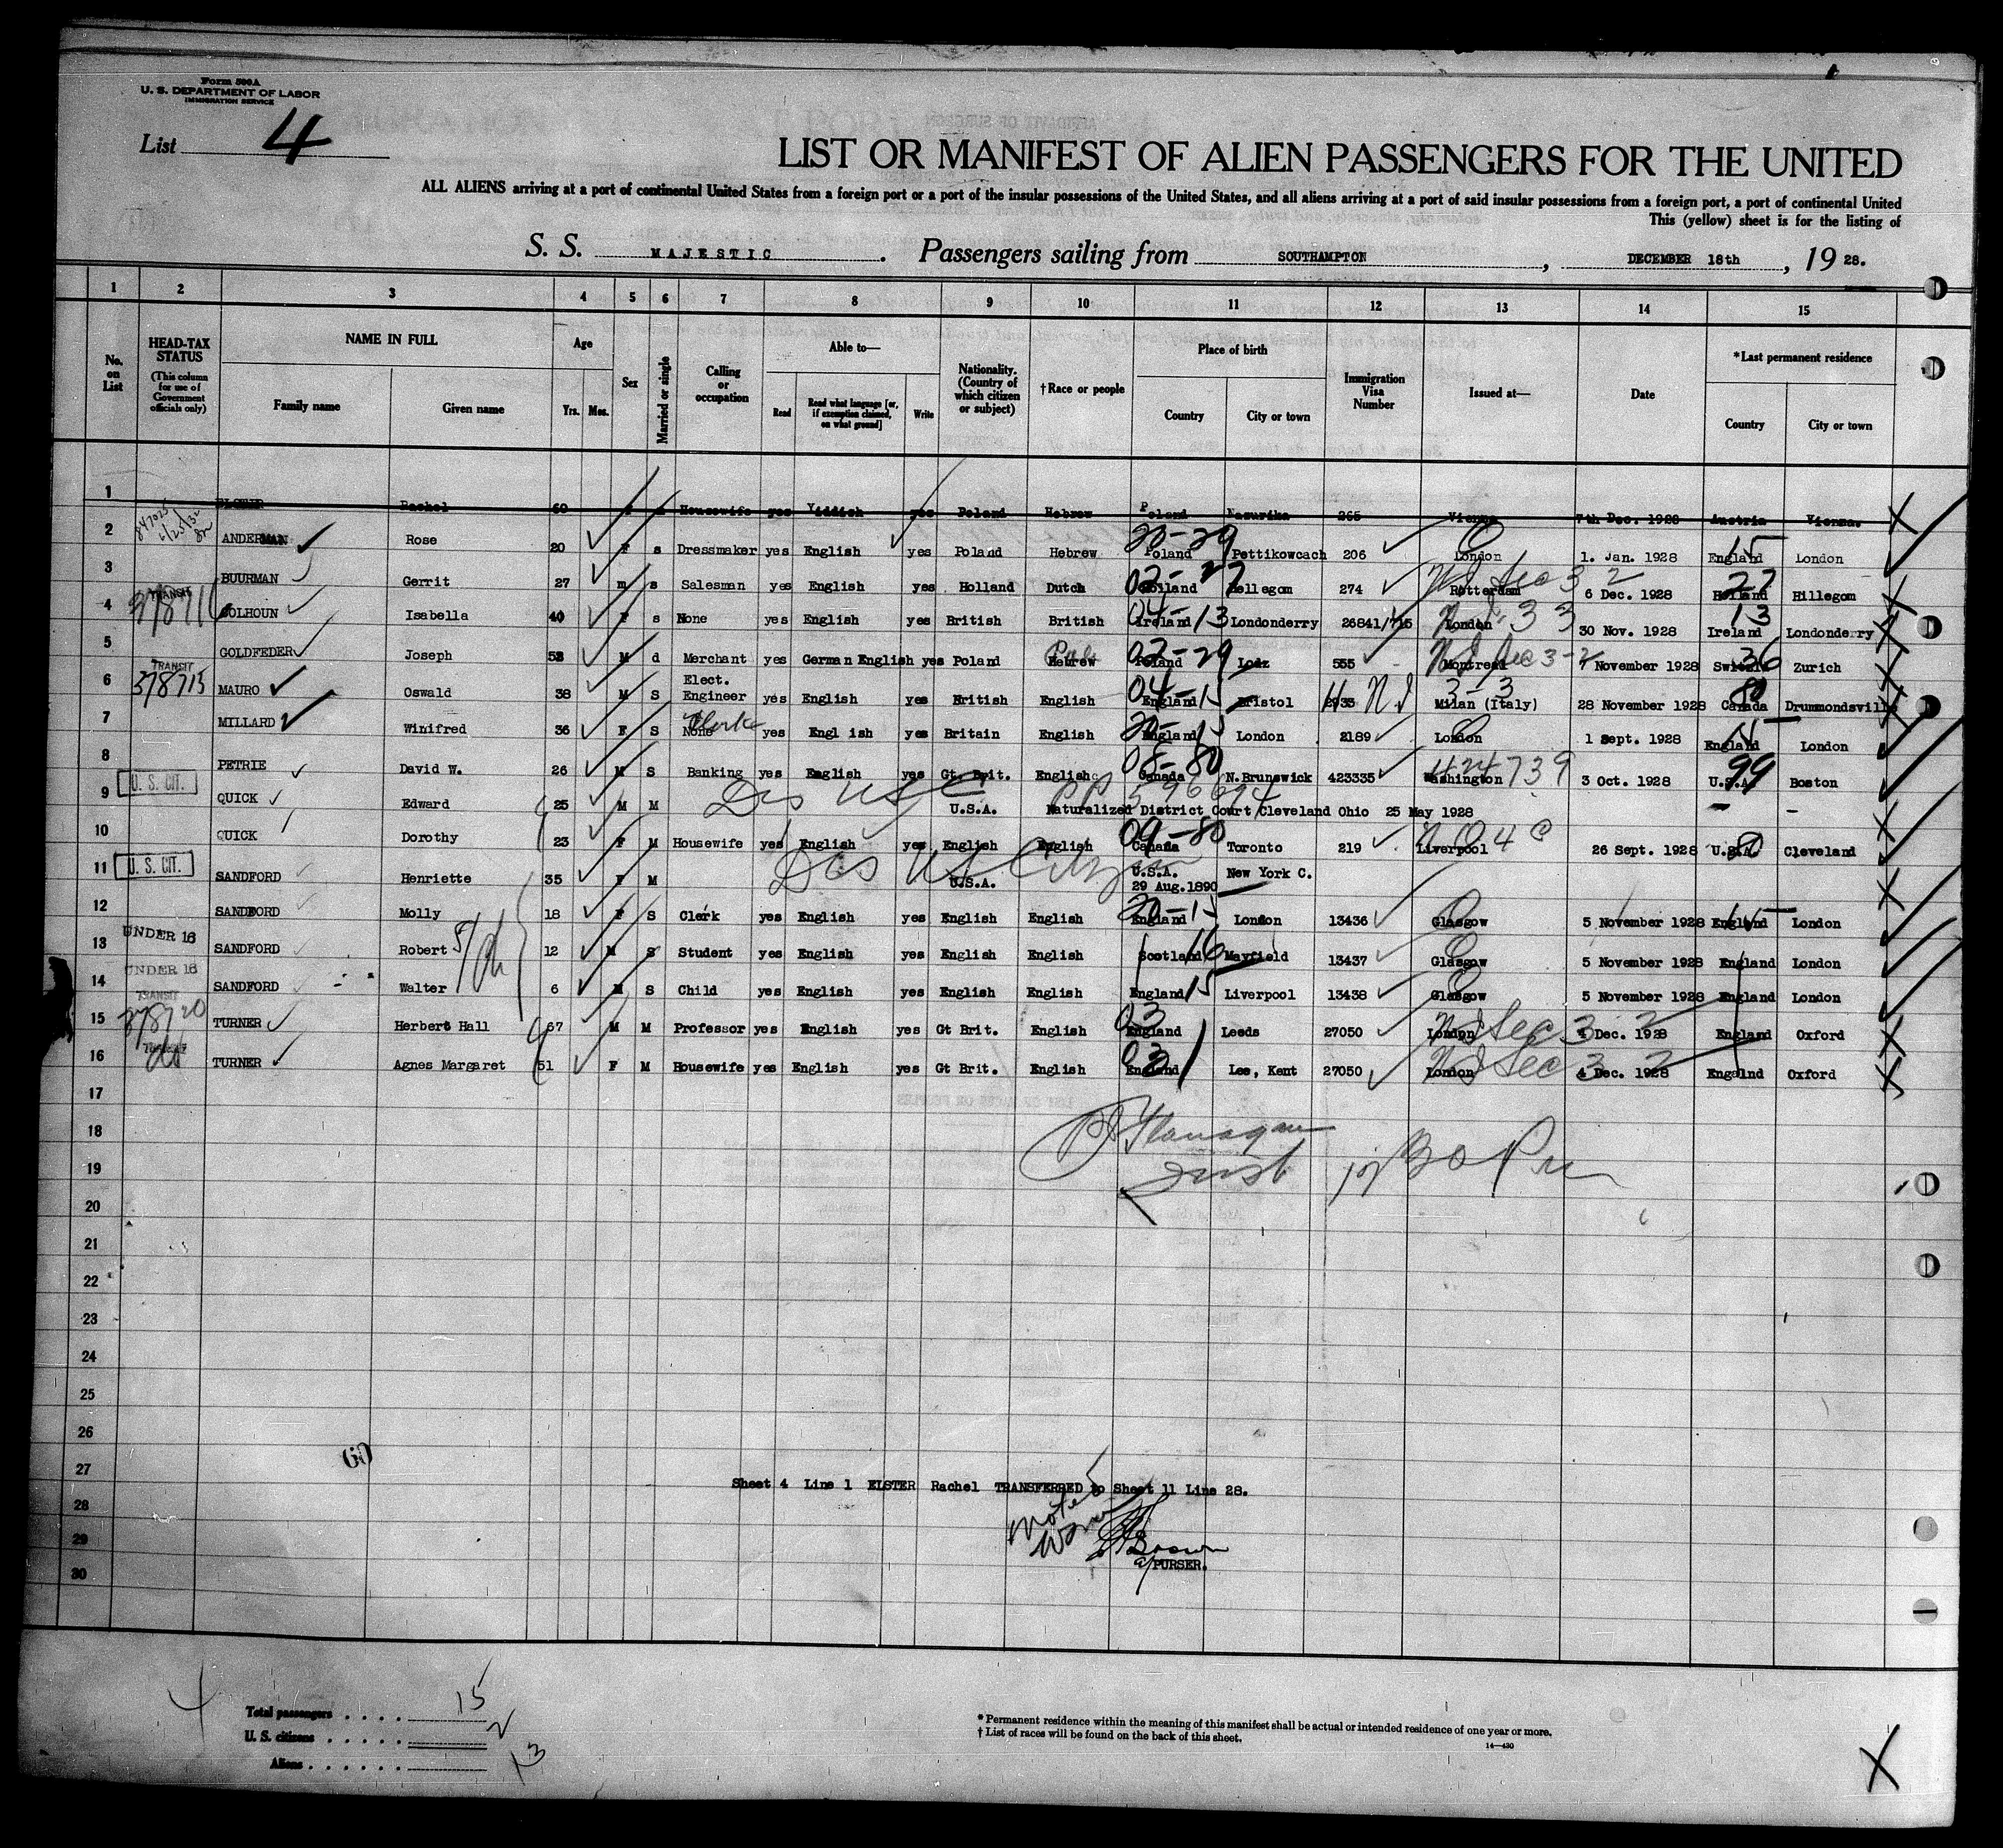 Form 500A
U. S. DEPARTMENT OF LABOR
IMMIGRATION SERVICE
List 4
LIST OR MANIFEST OF ALIEN PASSENGERS FOR THE UNITED
ALL ALIENS arriving at a port of continental United States from a foreign port or a port of the insular possessions of the United States, and all aliens arriving at a port of said insular possessions from a foreign port, a port of continental United
This (yellow) sheet is for the listing of
S. S. MAJESTIC. Passengers sailing from SOUTHAMPTON, DECEMBER 18th, 19 28.
1 2 3 4 5 6 7 8 9 10 11 12 13 14 15
No. on List HEAD-TAX STATUS (This column for use of Government officials only) NAME IN FULL Family name Given name Age Yrs. Mos. Sex Married or single Calling or occupation Able to— Read Read what language [or, if exemption claimed, on what ground] Write Nationality. (Country of which citizen or subject) †Race or people Place of birth Country City or town Immigration Visa Number Issued at— Date *Last permanent residence Country City or town
1 Rachel 60 Housewife yes Yiddish yes Poland Hebrew Poland 265 Vienna 7th Dec. 1928 Austria Vienna.
2 ANDERMAN Rose 20 F s Dressmaker yes English yes Poland Hebrew 20-29 Poland Pettikowcach 206 London 1. Jan. 1928 England 15 London
3 BUURMAN Gerrit 27 m s Salesman yes English yes Holland Dutch 02-27 Holland Hellegom 274 Rotterdam 6 Dec. 1928 Holland 27 Hillegom
4 TRANSIT COLHOUN Isabella 40 F s None yes English yes British British 04-13 Ireland Londonderry 26841/715 London 30 Nov. 1928 Ireland 13 Londonderry
5 GOLDFEDER Joseph 53 M d Merchant yes German English yes Poland Hebrew 02-29 Poland Lodz 555 Montreal 7 November 1928 Switz. 36 Zurich
6 TRANSIT 378715 MAURO Oswald 38 M S Elect. Engineer yes English yes British English 04-15 England Bristol 2933 3-3 Milan (Italy) 28 November 1928 Canada 80 Drummondsville
7 MILLARD Winifred 36 F S None Clerk yes Engl ish yes Britain English 20-15 England London 2189 London 1 Sept. 1928 England 15 London
8 PETRIE David W. 26 M S Banking yes English yes Gt. Brit. English 08-80 Canada N.Brunswick 423335 Washington 424739 3 Oct. 1928 U.S.A. 99 Boston
9 U. S. CIT. QUICK Edward 25 M M U.S.A. Naturalized District Court Cleveland Ohio 25 May 1928 - -
10 QUICK Dorothy 23 F M Housewife yes English yes English English 09-80 Canada Toronto 219 Liverpool 26 Sept. 1928 U.S.A. Cleveland
11 U. S. CIT. SANDFORD Henriette 35 F M U.S.A. U.S.A. 29 Aug.1890 New York C.
12 SANDFORD Molly 18 F S Clerk yes English yes English English 20-15 England London 13436 Glasgow 5 November 1928 England 15 London
13 UNDER 16 SANDFORD Robert 12 M S Student yes English yes English English Scotland 16 Mayfield 13437 Glasgow 5 November 1928 England London
14 UNDER 16 SANDFORD Walter 6 M S Child yes English yes English English England 15 Liverpool 13438 Glasgow 5 November 1928 England London
15 TRANSIT 378720 TURNER Herbert Hall 67 M M Professor yes English yes Gt Brit. English 03 England Leeds 27050 London 4 Dec. 1928 England Oxford
16 do TURNER Agnes Margaret 51 F M Housewife yes English yes Gt Brit. English 03 England Lee, Kent 27050 London 4 Dec. 1928 Engalnd Oxford
17
18
19
20
21
22
23
24
25
26
60
27 Sheet 4 Line 1 ELSTER Rachel TRANSFERRED to Sheet 11 Line 28.
28
29 Brown
30 a/PURSER.
Total passengers 15
U. S. citizens 2
Aliens 13
* Permanent residence within the meaning of this manifest shall be actual or intended residence of one year or more.
† List of races will be found on the back of this sheet.
14—430